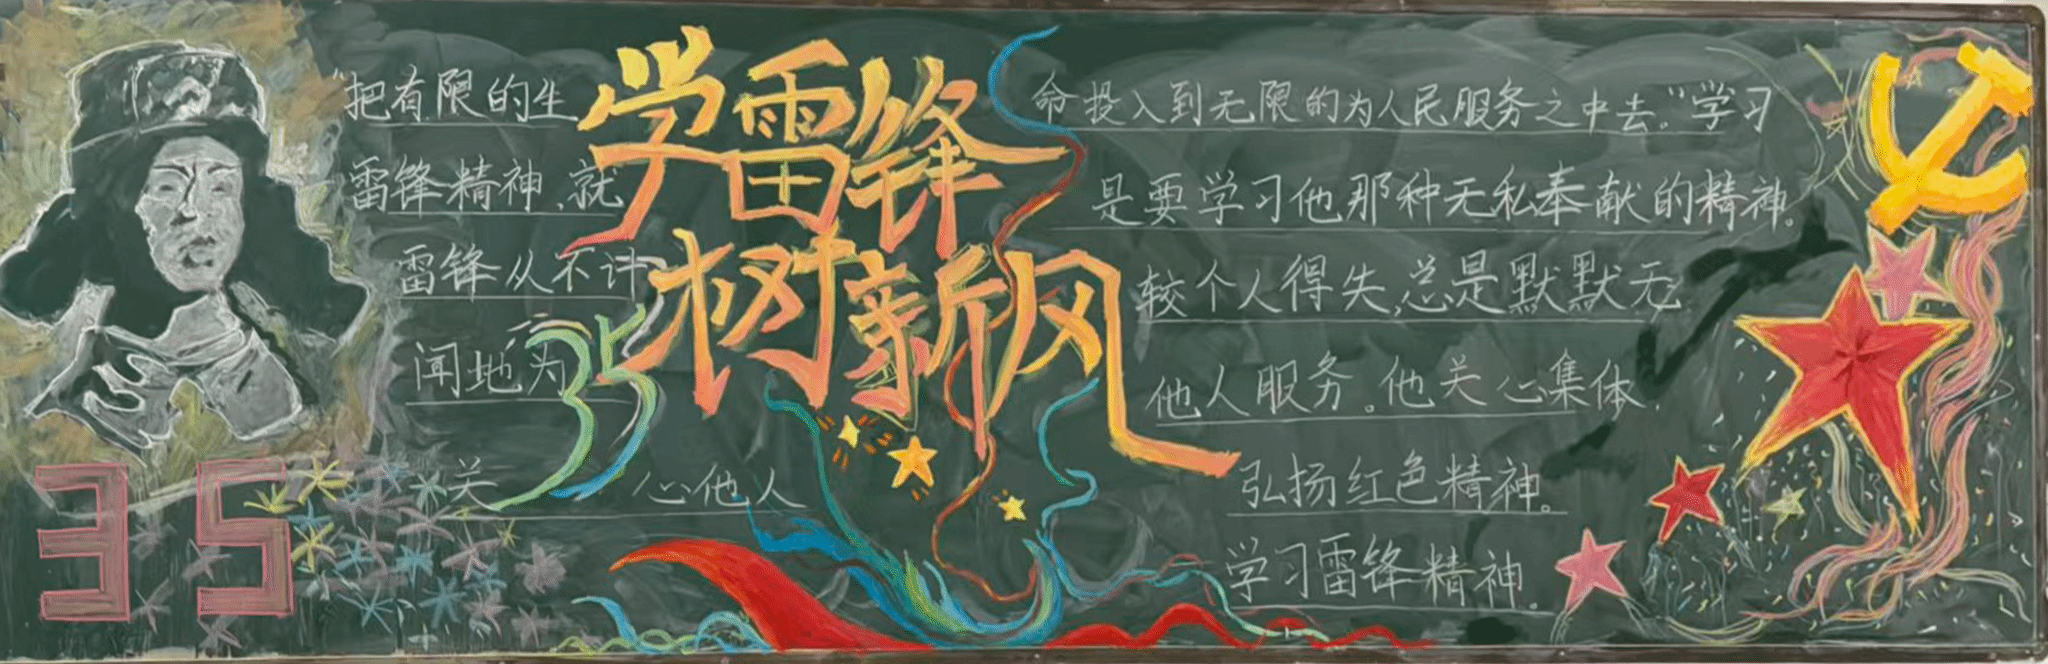 学雷锋
树新风
"把有限的生命投入到无限的为人民服务之中去。"学习
雷锋精神,就是要学习他那种无私奉献的精神。
雷锋从不计较个人得失,总是默默无
闻地为他人服务。他关心集体
关心他人弘扬红色精神。
学习雷锋精神。
35
35